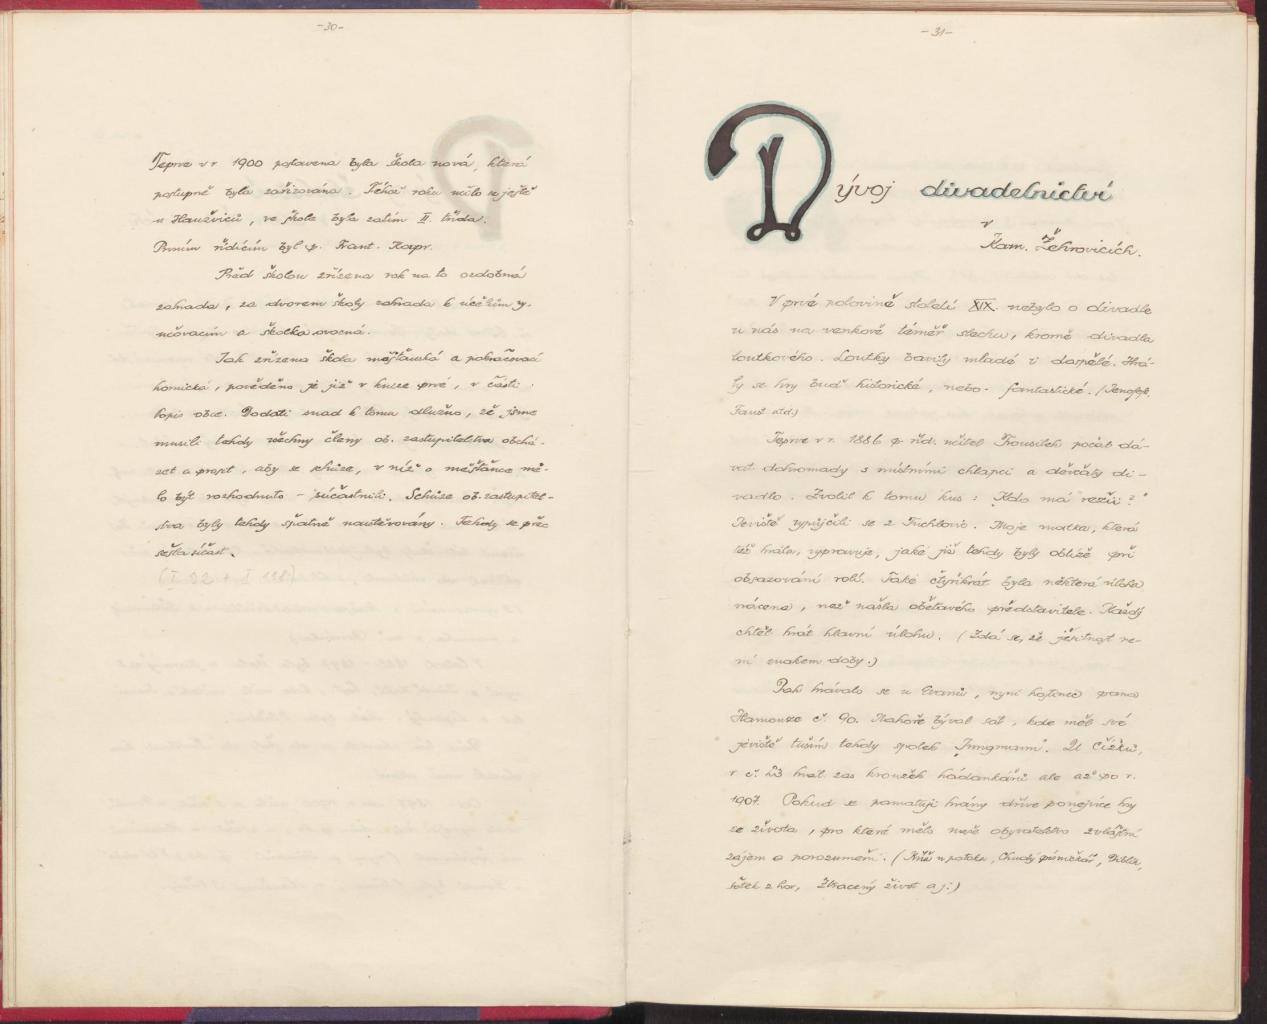 -30-
Teprve v r. 1900 postavena byla škola nová, která
postupně byla zařizována. Téhož roku učilo se ještě
u Haužviců, ve škole byla zatím II. třída.
Prvním řídícím byl p. Frant. Kopr.
Před školou zřízena rok na to ozdobná
zahrada, za dvorem školy zahrada k účelům vy-
učovacím a školka ovocná.
Jak zřízena škola měšťanská a pokračovací
hornická, pověděno je již v knize prvé, v části:
Popis obce. Dodati snad k tomu dlužno, že jsme
musili tehdy všechny členy ob. zastupitelstva obchá-
zet a prosit, aby se schůze, v níž o měšťance mě-
lo být rozhodnuto - súčastnili. Schůze ob. zastupitel-
stva byly tehdy špatně navštěvovány. Tehdy se přec
sešla účast.
-31-
Vývoj divadelnictví
v
Kam. Žehrovicích.
V prvé polovině století XIX. nebylo o divadle
u nás na venkově téměř slechu, kromě divadla
loutkového. Loutky bavily mladé i dospělé. Hrá-
ly se hry buď historické, nebo fantastické. (Jenofefa,
Faust atd.)
Teprve v r. 1886 p. říd. učitel Trousílek počal dá-
vat dohromady s místními chlapci a děvčaty di-
vadlo. Zvolil k tomu kus: "Kdo má režii?"
Jeviště vypůjčili se z Tuchlovic. Moje matka, která
též hrála, vypravuje, jaké již tehdy byly obtíže při
obsazování rolí. Také čtyřikrát byla některá úloha
vrácena, než našla obětavého představitele. Každý
chtěl hrát hlavní úlohu. (Zdá se, že ješitnost ne-
ní znakem doby.)
Pak hrávalo se u Evanů, nyní hostinec pana
Hamouze č. 90. Nahoře býval sál, kde měl své
jeviště tuším tehdy spolek "Jungmann". U Čížků,
v č. 23 hrál zas kroužek hádankářů ale až po r.
1907. Pokud se pamatuji hrány dříve ponejvíce hry
ze života, pro které mělo naše obyvatelstvo zvláštní
zájem a porozumění. (Kříž u potoka, Chudý písničkář, Diblík,
šotek z hor, Ztracený život a j.)